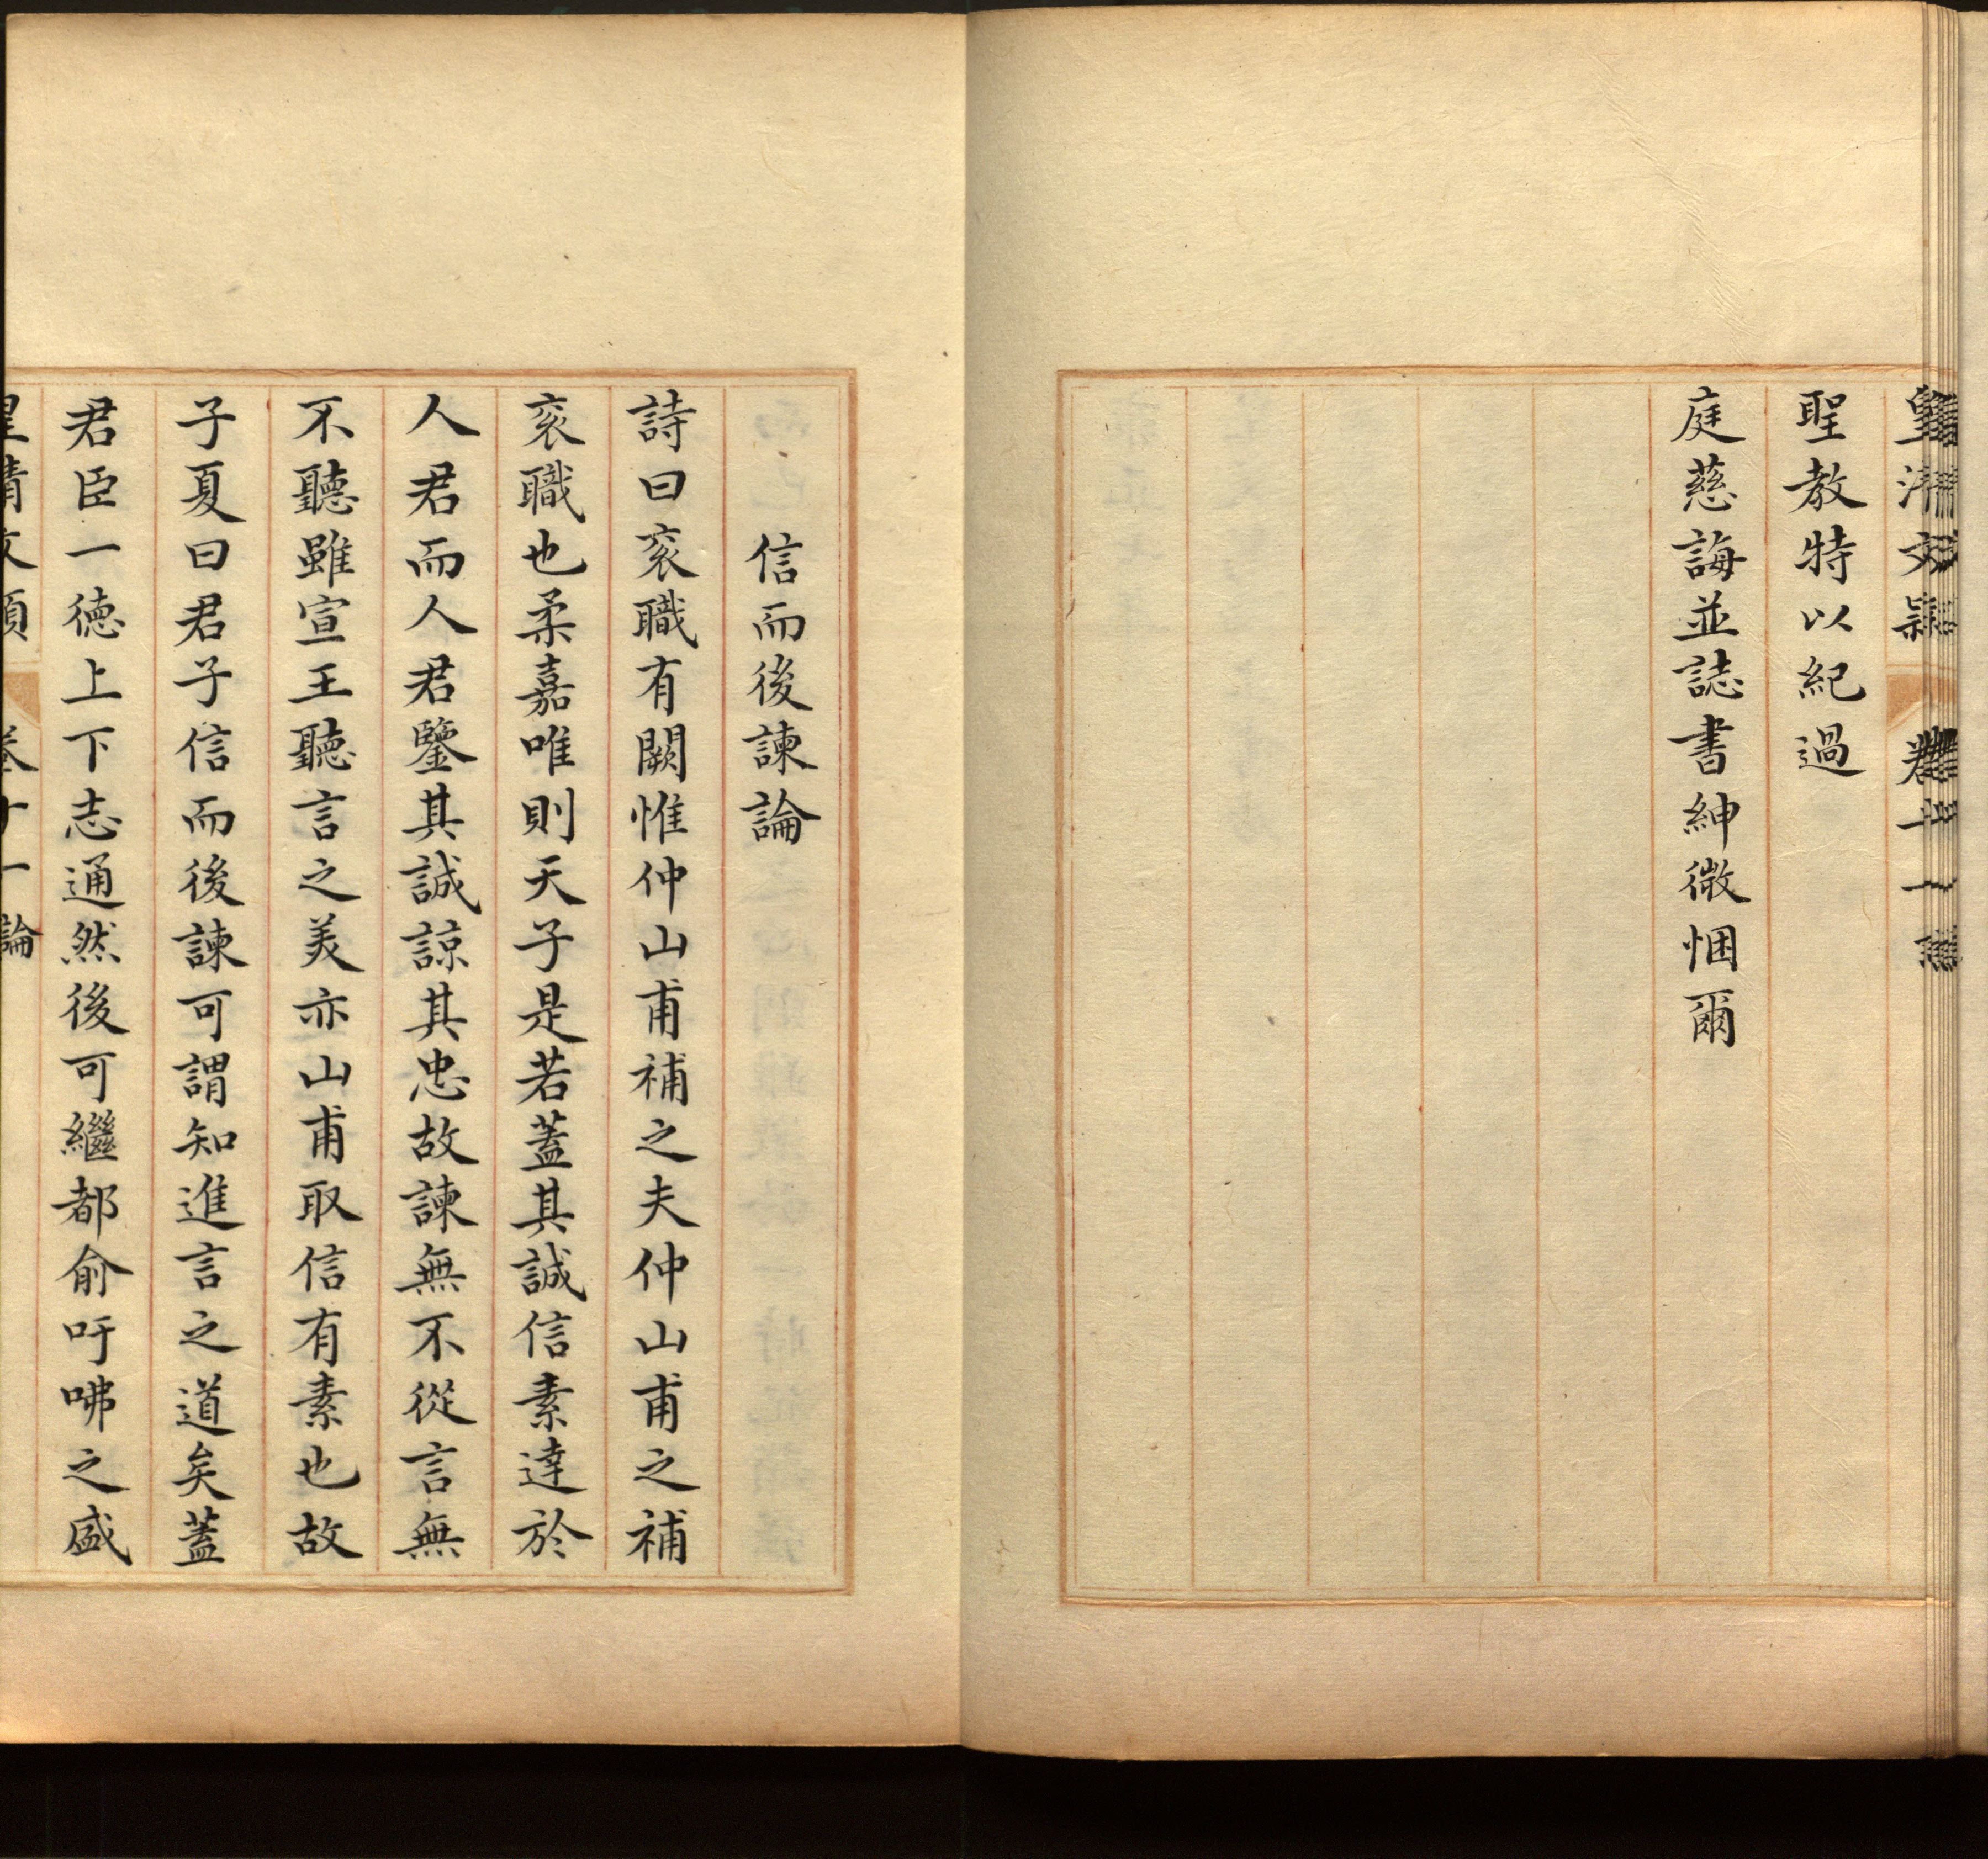 皇清文穎 卷十一 論
聖教特以紀過
庭慈誨並誌書紳微悃爾
信而後諫論
詩曰衮職有闕惟仲山甫補之夫仲山甫之補
衮職也柔嘉唯則天子是若蓋其誠信素達於
人君而人君鑒其誠諒其忠故諫無不從言無
不聽雖宣王聽言之美亦山甫取信有素也故
子夏曰君子信而後諫可謂知進言之道矣蓋
君臣一德上下志通然後可繼都俞吁咈之盛
皇清文穎 卷十一 論